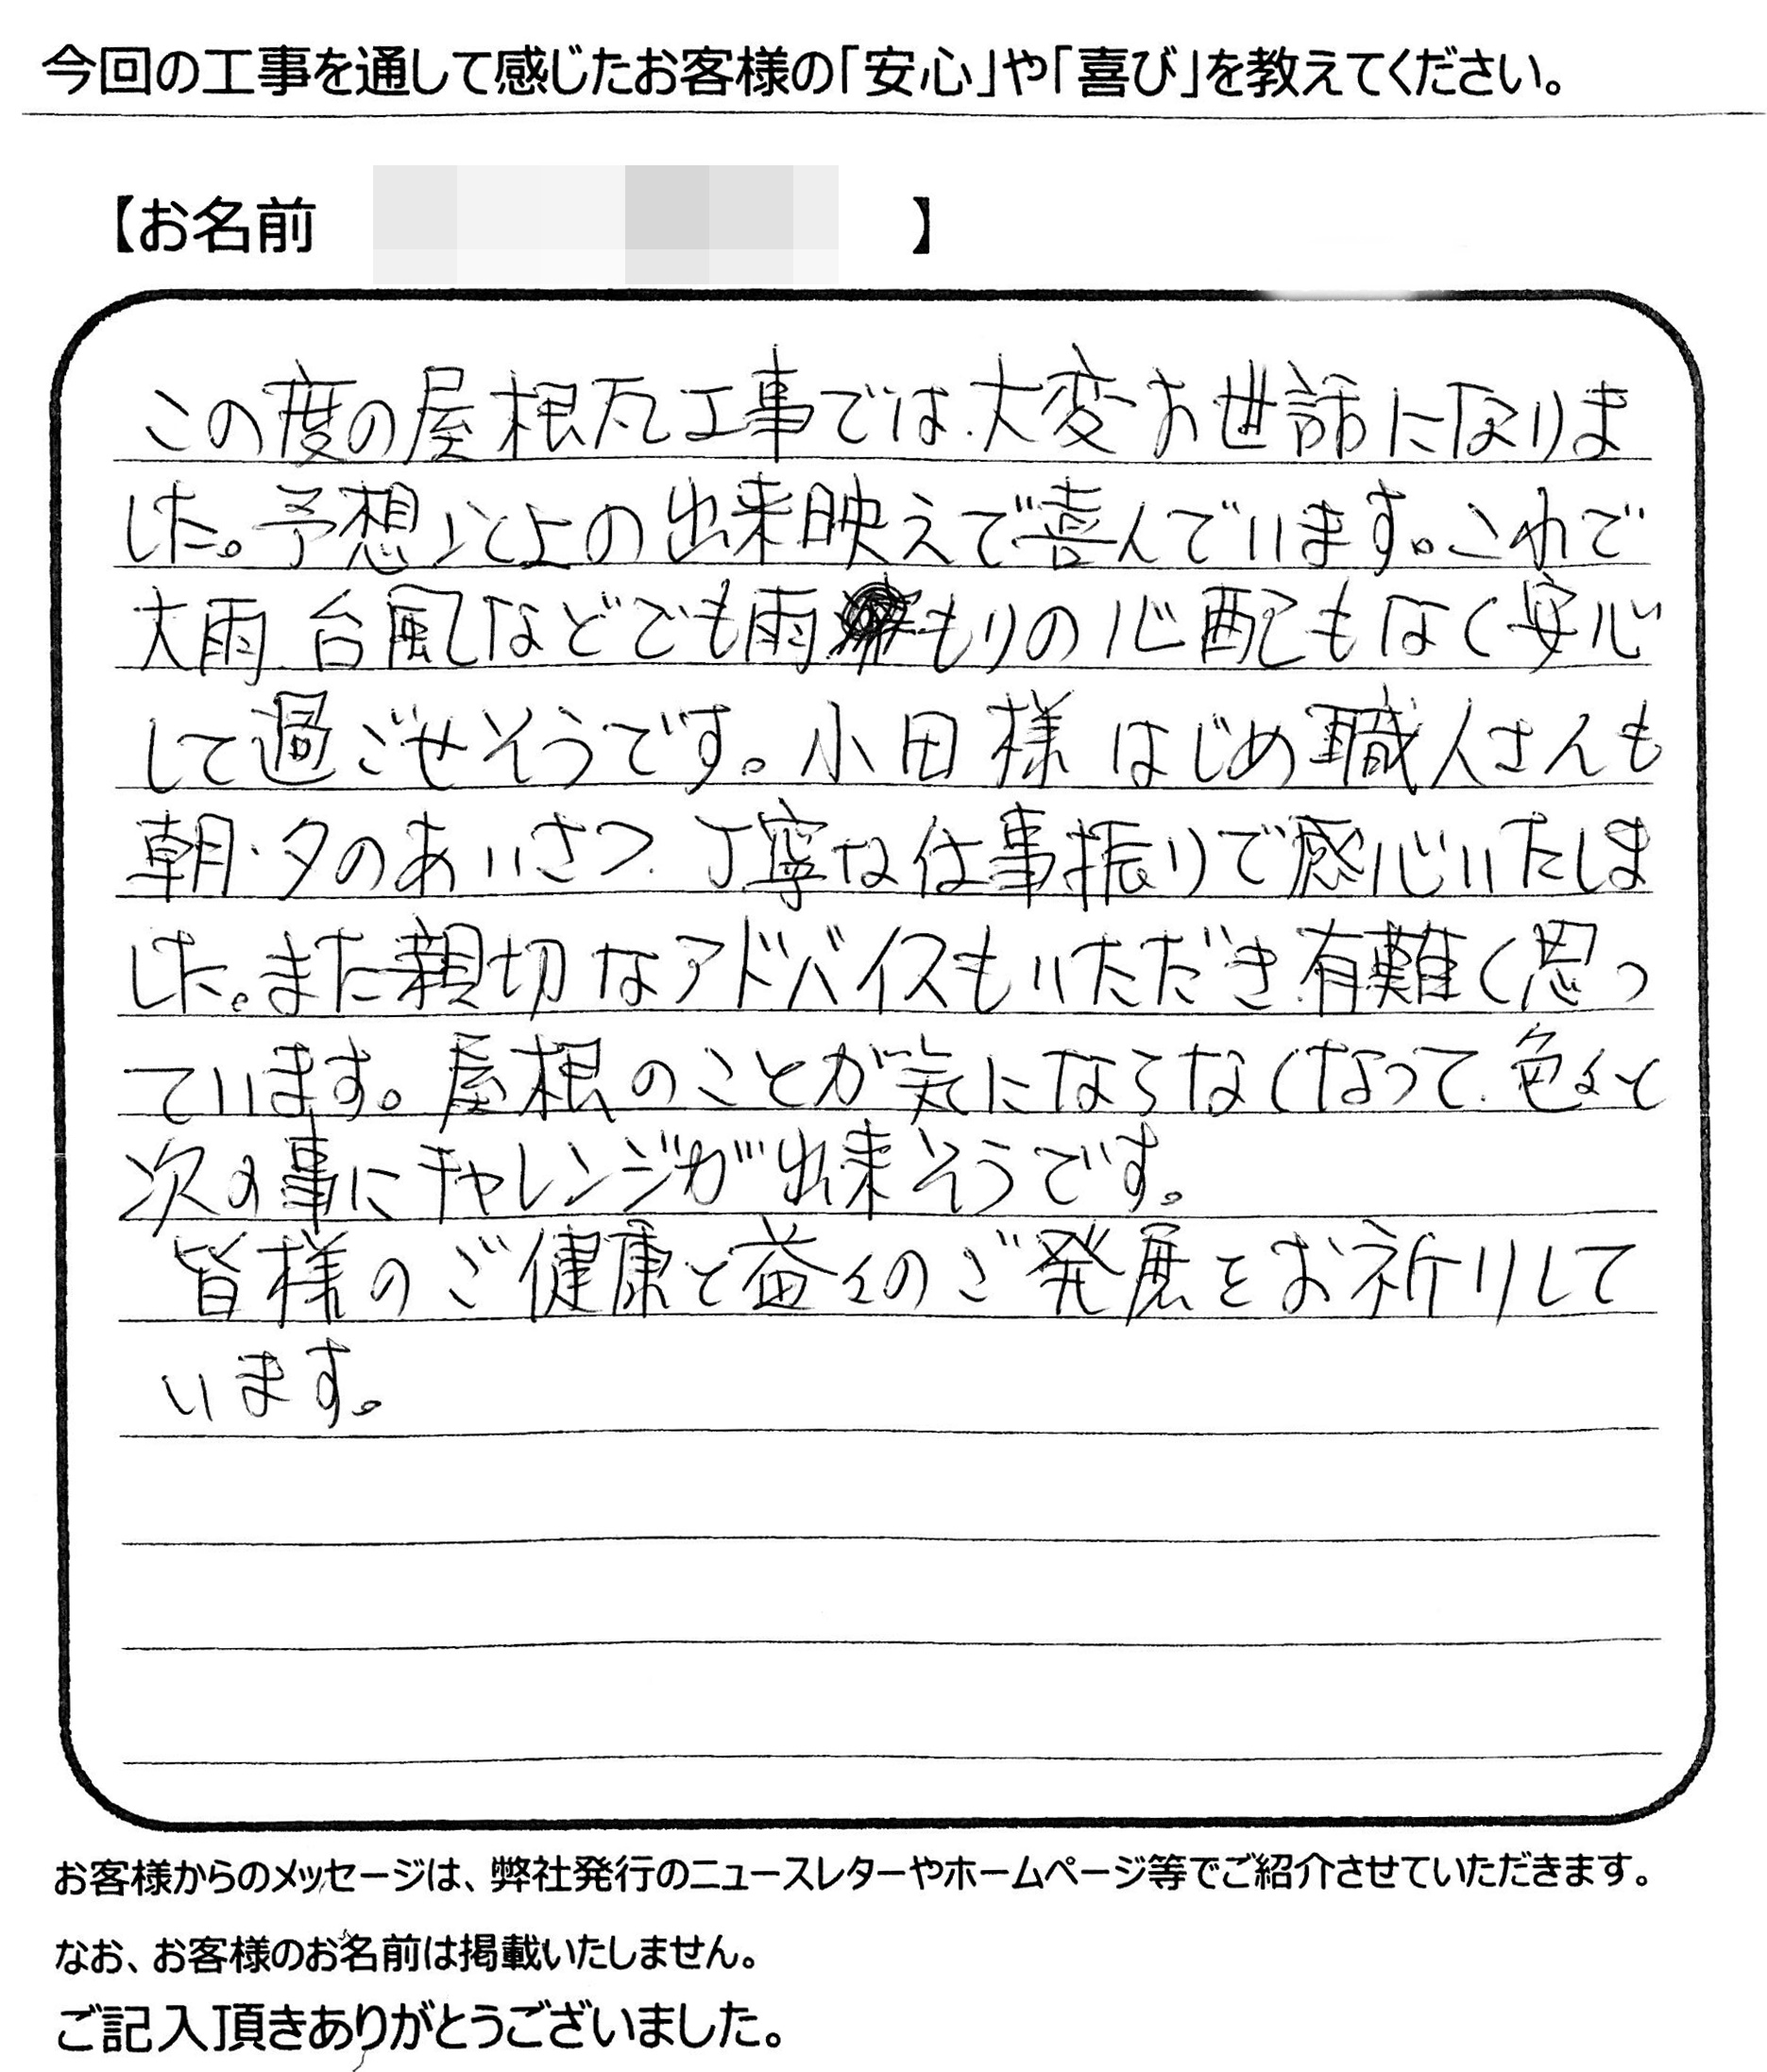 今回の工事を通して感じたお客様の「安心」や「喜び」を教えてください。
【お名前 】
この度の屋根瓦工事では、大変お世話になりま
した。予想以上の出来映えで喜んでいます。これで
大雨、台風などでも雨もりの心配もなく安心
して過ごせそうです。小田様はじめ職人さんも
朝・夕のあいさつ、丁寧な仕事振りで感心いたしま
した。また親切なアドバイスもいただき有難く思っ
ています。屋根のことが気にならなくなって、色々と
次の事にチャレンジが出来そうです。
皆様のご健康と益々のご発展をお祈りして
います。
お客様からのメッセージは、弊社発行のニュースレターやホームページ等でご紹介させていただきます。
なお、お客様のお名前は掲載いたしません。
ご記入頂きありがとうございました。